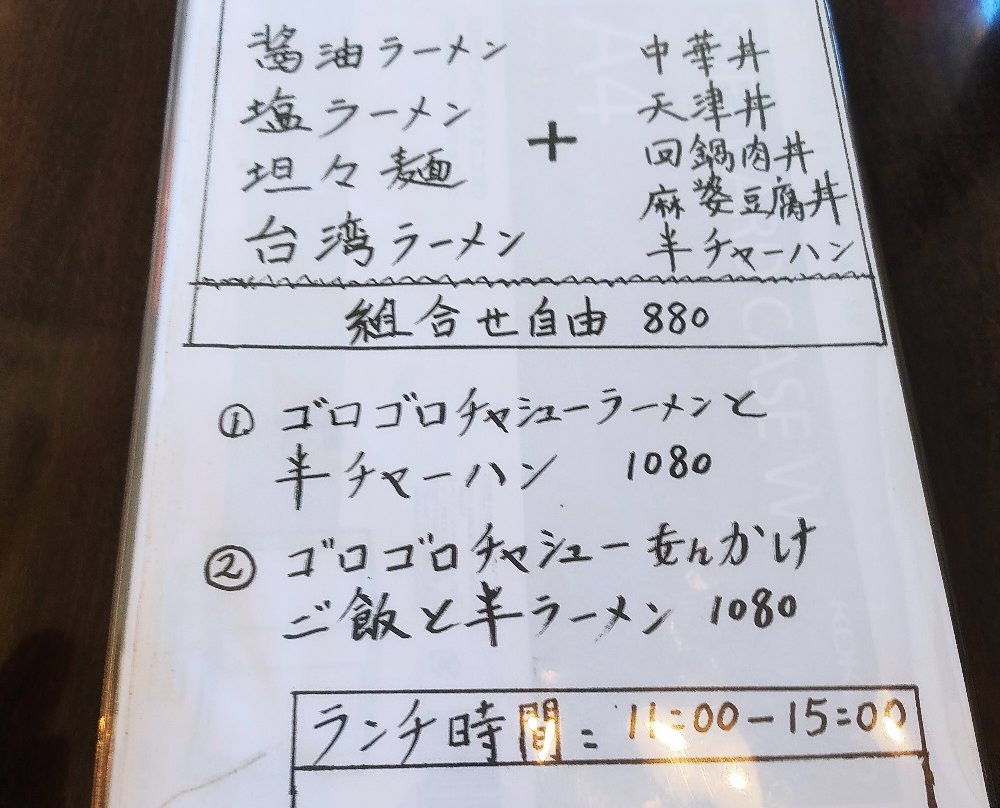 醤油ラーメン
塩ラーメン
坦々麺
台湾ラーメン
+
中華丼
天津丼
回鍋肉丼
麻婆豆腐丼
半チャーハン
組合せ自由 880
① ゴロゴロチャシューラーメンと
半チャーハン 1080
② ゴロゴロチャシューあんかけ
ご飯と半ラーメン 1080
ランチ時間=11=00-15=00
A4
CASE W